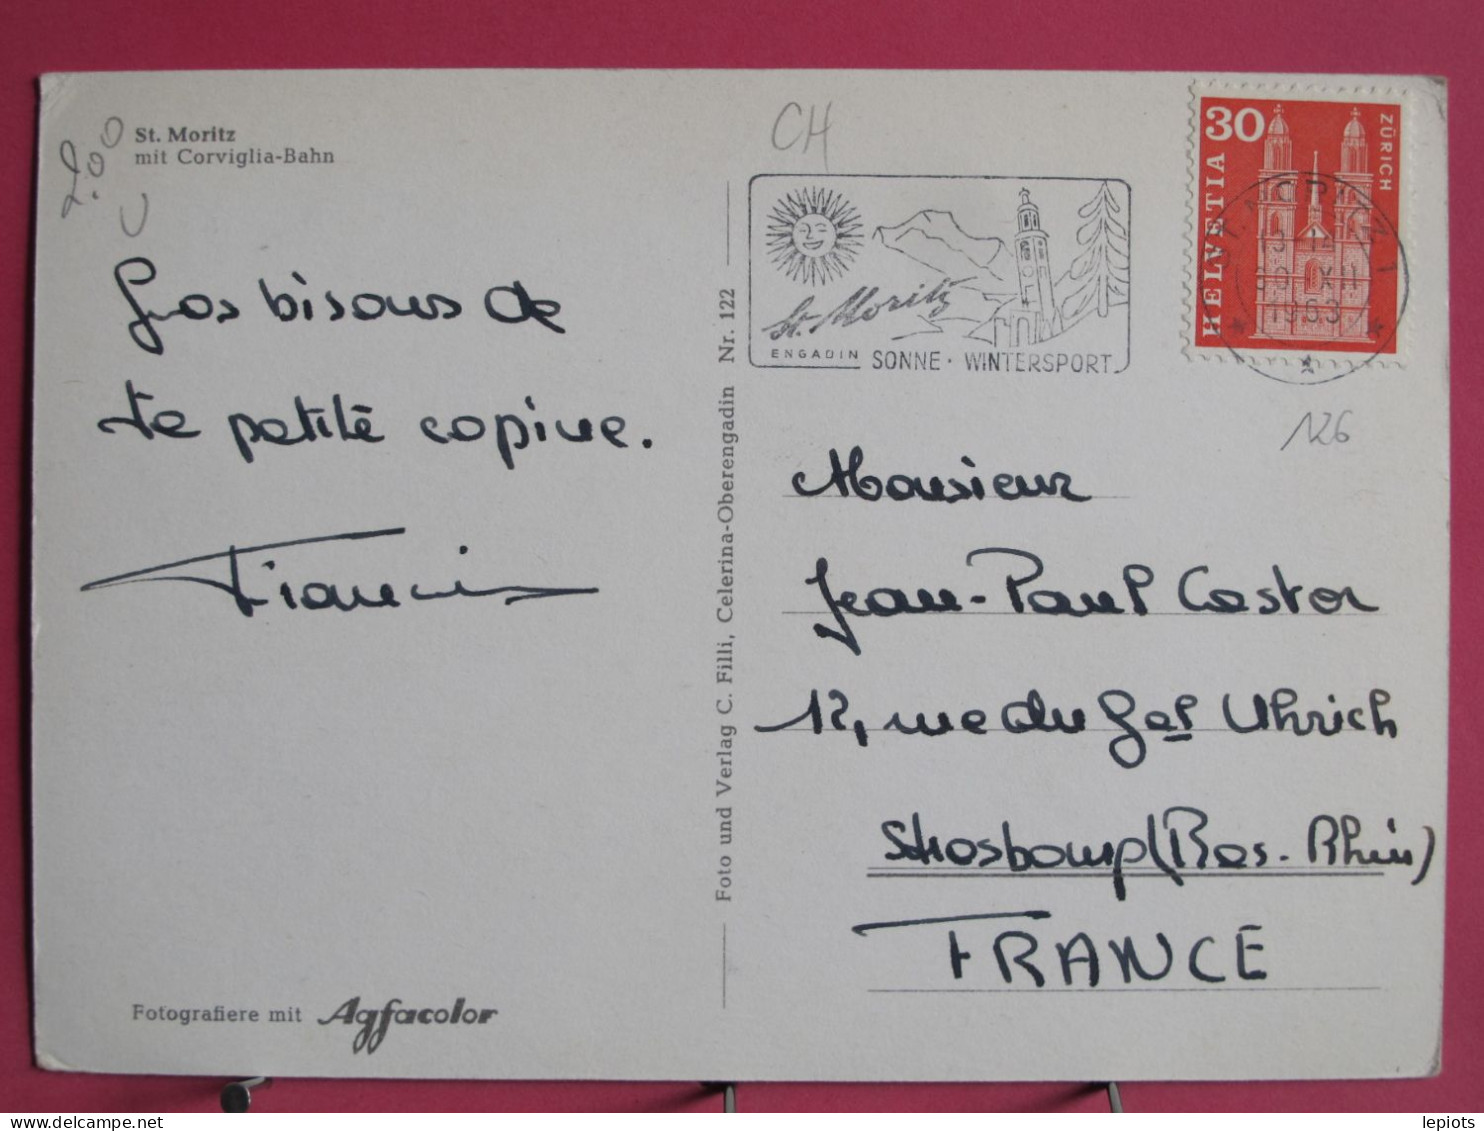 St. Moritz
mit Corviglia-Bahn
2.00
U
Gros bisous de
ta petite copine.
Francis
Fotografiere mit Agfacolor
Foto und Verlag C. Filli, Celerina-Oberengadin Nr. 122
CH
St. Moritz
ENGADIN SONNE · WINTERSPORT
30
ZÜRICH
HELVETIA
ST. MORITZ 1
XII
126
Monsieur
Jean-Paul Castor
12, rue du Gal Uhrich
Strasbourg (Bas-Rhin)
FRANCE
lepiots